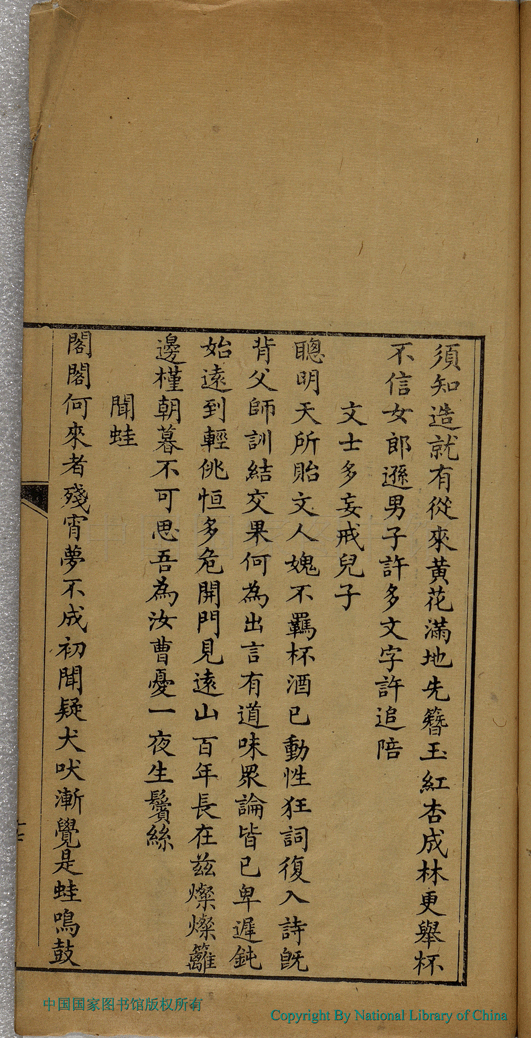 須知造就有從來黃花滿地先簪玉紅杏成林更舉杯
不信女郎遜男子許多文字許追陪
文士多妄戒兒子
聰明天所貽文人媿不羈杯酒已動性狂詞復入詩旣
背父師訓結交果何為出言有道味眾論皆已卑遲鈍
始遠到輕佻恒多危開門見遠山百年長在兹燦燦籬
邊槿朝暮不可思吾為汝曹憂一夜生鬢絲
聞蛙
閣閣何來者殘宵夢不成初聞疑犬吠漸覺是蛙鳴鼓
中国国家图书馆版权所有
Copyright By National Library of China